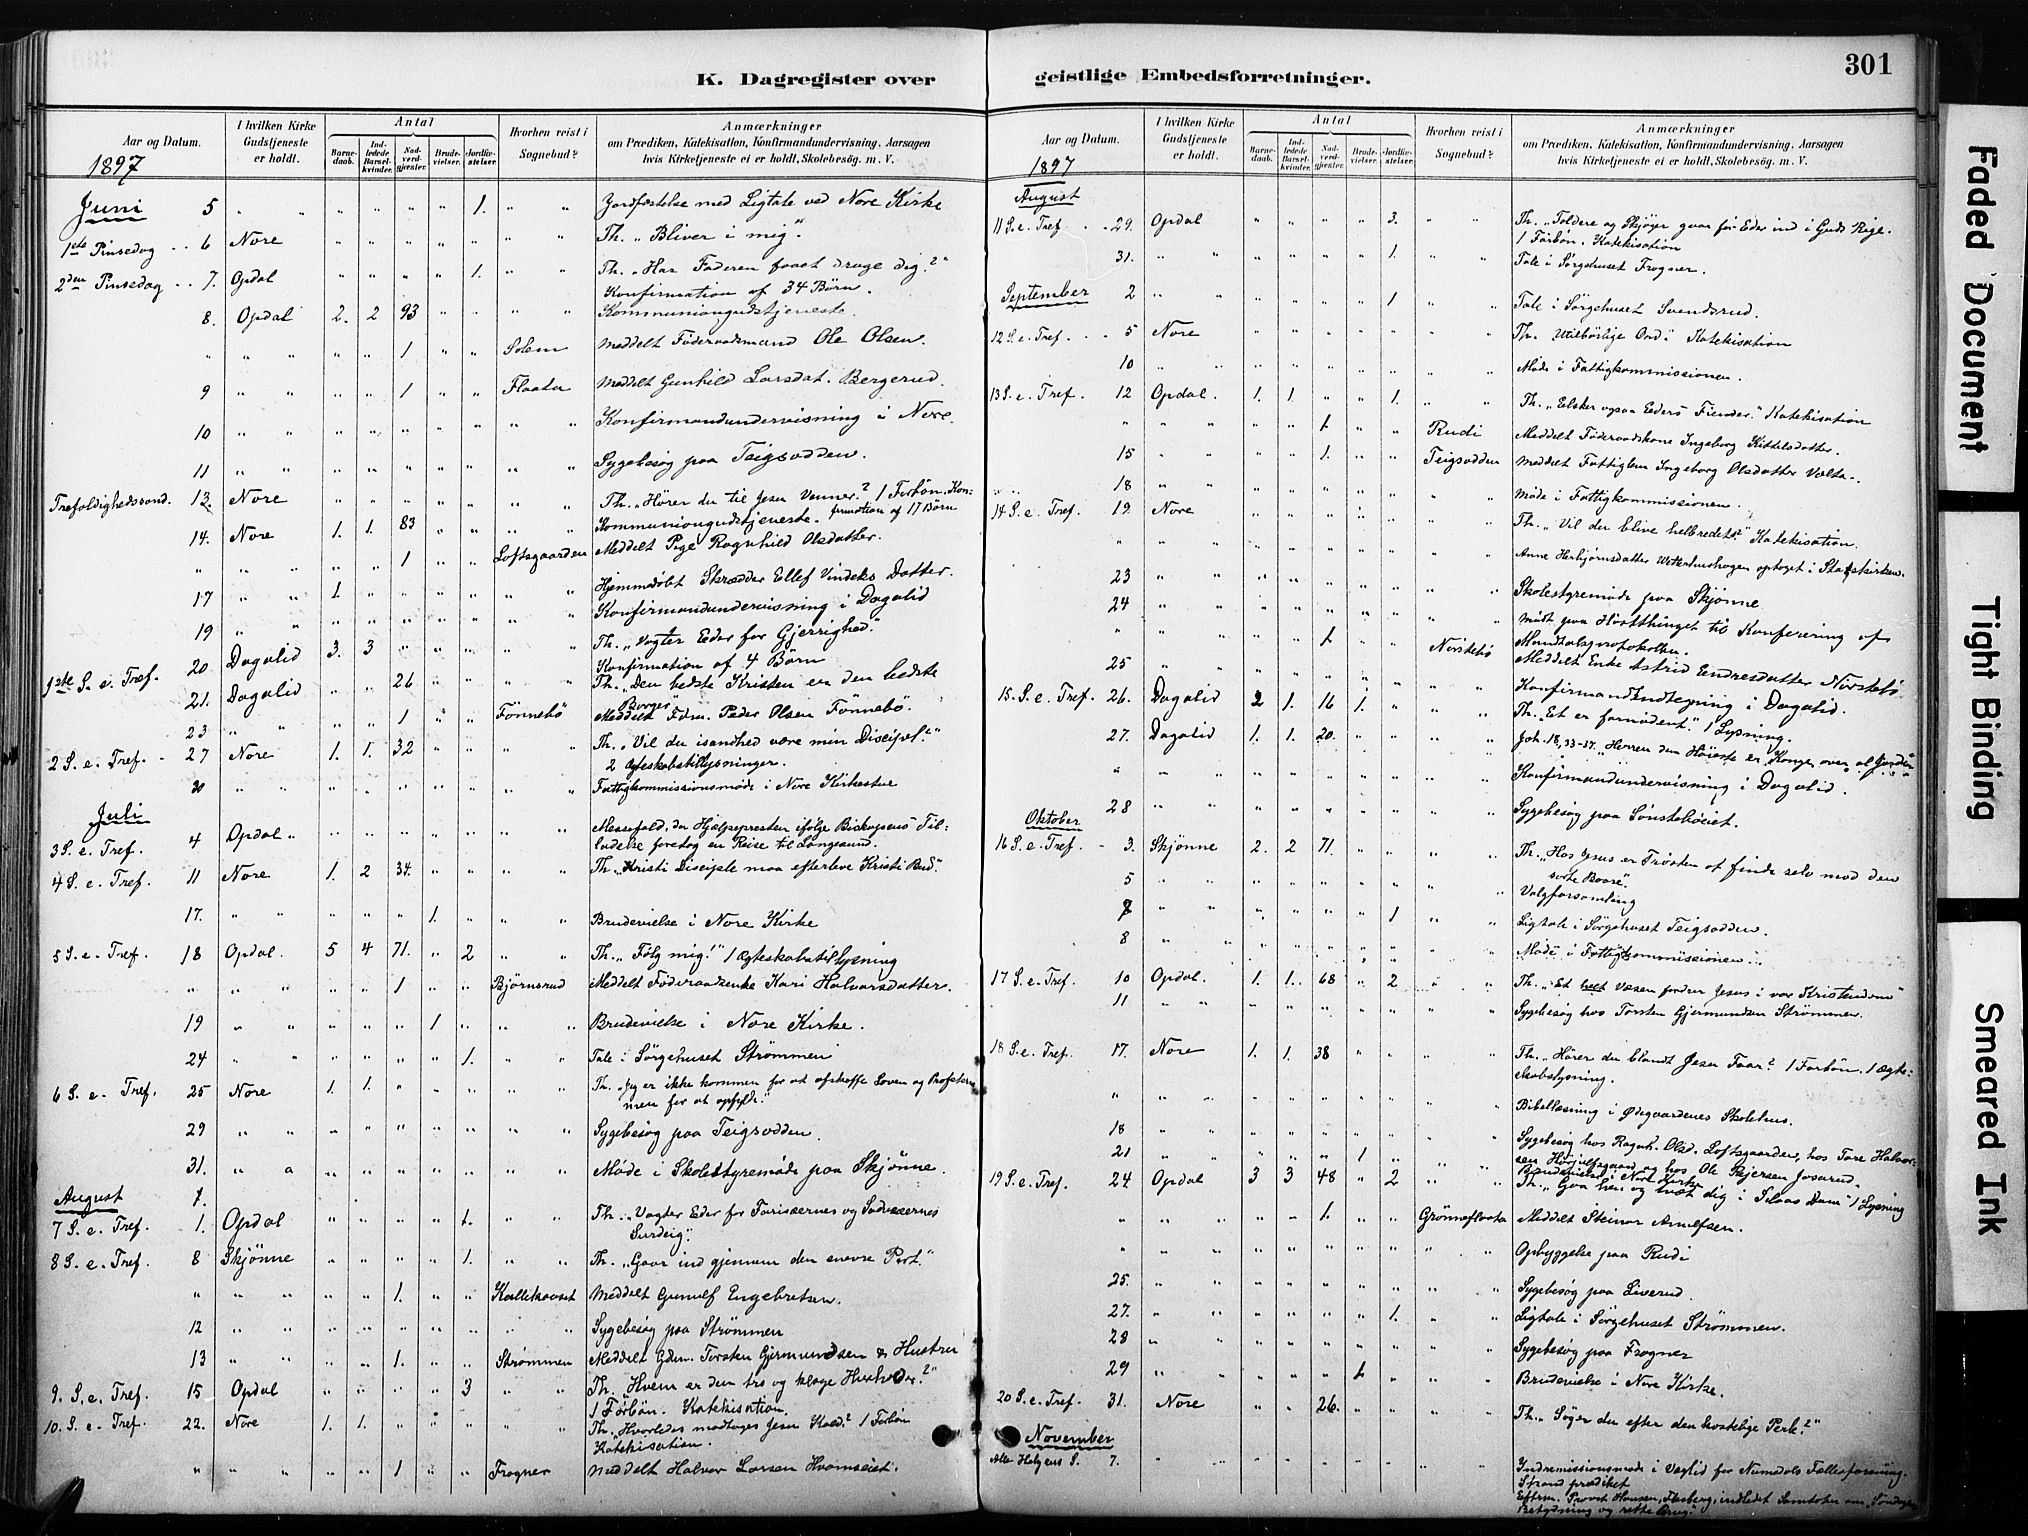 K. Dagregister over
Aar og Datum.
I hvilken Kirke Gudstjeneste er holdt.
Antal
Barnedaab.
Indledede Barselkvinder.
Nadverdgjester.
Brudevielser.
Jordfæstelser.
Hvorhen reist i Sognebud?
Anmærkninger
om Prædiken, Katekisation, Konfirmandundervisning, Aarsagen
hvis Kirketjeneste ei er holdt, Skolebesøg. m. V.
1897
Juni 5 " " " " " " 1. " " Jordfæstelse med Ligtale ved Nore Kirke
1ste Pinsedag 6 Nore " " " " " " " Th. "Bliver i mig".
2den Pinsedag 7. Opdal " " " " 1. " " Th. "Har Faderen faaet drage dig?"
Konfirmation af 34 Børn.
8. Opdal 2. 2 93 " " " " Kommuniongudstjeneste.
" " " " " 1 " " Solem Meddelt Føderaadsmand Ole Olsen.
9 " " " " 1 " " Flaata Meddelt Gunhild Larsdat. Bergerud.
10 " " " " " " " " " Konfirmandundervisning i Nore.
11 " " " " " " " " " Sygebesøg paa Teigsodden.
Trefoldighedssønd. 13. Nore " " " " " " " Th. "Hører du til Jesu Venner?" 1 Forbøn. Konfirmation af 17 Børn
14. Nore 1. 1. 83 " " " " Kommuniongudstjeneste.
" " " " " 1 " " Loftsgaarden Meddelt Pige Ragnhild Olsdatter.
17 " " 1. " " " " " " Hjemmedøbt Skrædder Ellef Vindeks Datter.
19 " " " " " " " " " Konfirmandundervisning i Dagalid
1ste S. e. Tref. 20 Dagalid 3. 3 " " " " " Th. "Vogter Eder for Gjerrighed."
Konfirmation af 4 Børn
21. Dagalid " " 26 " " " " Th. "Den bedste Kristen er den bedste Borger"
23 " " " " 1 " " Fönnebö Meddelt Fdm. Peder Olsen Fönnebö.
2 S. e. Tref. 27 Nore 1. 1. 32 " " " " Th. "Vil du isandhed være min Discipel?"
2 Ægteskabstillysninger.
30 " " " " " " " " " Fattigkommissionsmøde i Nore Kirkestue
Juli
3 S. e. Tref. 4 Opdal " " " " " " " " Messefald, da Hjælpepresten ifølge Biskopens Tilladelse foretog en Reise til Langesund.
4 S. e. Tref. 11 Nore 1. 2 34. " " " " Th. "Kristi Disciple maa efterleve Kristi Bud".
17. " " " " " 1. " " " Brudevielse i Nore Kirke
5 S. e. Tref. 18 Opdal. 5 4 71. " 2 " " Th. "Følg mig!" 1 Ægteskabstillysning
" " " " " 1 " " Bjørnsrud Meddelt Føderaadsenke Kari Halvorsdatter.
19 " " " " " 1 " " " Brudevielse i Nore Kirke.
24 " " " " " " 1. " " Tale i Sørgehuset Strømmen
6 S. e. Tref. 25 Nore 1. 1. " " " " " Th. "Jeg er ikke kommen for at ophæffe Loven og Profeterne
men for at opfylde."
29 " " " " " " " " " Sygebesøg paa Teigsodden.
31. " " " " " " " " " Møde i Skolestyremøde paa Skjønne.
August
7 S. e. Tref. 1. Opdal " " " " 1. " " Th. "Vogter Eder for Farisæernes og Sadusæernes
Surdeig".
8 S. e. Tref. 8 Skjønne " " " " 1. " " Th. "Gaar ind gjennem den snevre Port."
" " " " " 1. " " Kallekodset Meddelt Gunulf Engebretsen.
12 " " " " " " " " " Sygebesøg paa Strømmen
13 " " " " 1. " " Strømmen Meddelt Gdm. Torsten Gjermundsen & Hustru
9. S. e. Tref. 15 Opdal " " " " 3 " " Th. Hvem er den tro og kloge Husholder?"
1 Forbøn. Katekisation.
10. S. e. Tref. 22. Nore 1. 1. " " " " " Th. "Hvorledes modtages Jesu Kald?" 1 Forbøn
Katekisation.
" " " " " 1 " " Frogner Meddelt Halvor Larsen Hvamseiet.
geistlige Embedsforretninger.
301
Aar og Datum.
I hvilken Kirke Gudstjeneste er holdt.
Antal
Barnedaab.
Indledede Barselkvinder.
Nadverdgjester.
Brudevielser.
Jordfæstelser.
Hvorhen reist i Sognebud?
Anmærkninger
om Prædiken, Katekisation, Konfirmandundervisning, Aarsagen
hvis Kirketjeneste ei er holdt, Skolebesøg. m. V.
1897
August
11 S. e. Tref. 29. Opdal " " " " 3. " " Th. "Toldere og Skjøger gaar før Eder ind i Guds Rige.
1 Forbøn. Katekisation
31. " " " " " " 1. " " Tale i Sørgehuset Frogner.
September 2 " " " " " " 1 " " Tale i Sørgehuset Svendsrud.
12 S. e. Tref. 5 Nore " " " " " " " Th. "Utilbørlige Ord." Katekisation
10 " " " " " " " " " Møde i Fattigkommissionen.
13 S. e. Tref. 12 Opdal. 1. 1. " " 1. " " Th. "Elsker ogsaa Eders Fiender." Katekisation
" " " " " 1 " " Rudi Meddelt Føderaadskone Ingeborg Kittelsdatter.
15 " " " " 1. " " Teigsodden Meddelt Fattiglem Ingeborg Olsdatter Valta.
18 " " " " " " " " " Møde i Fattigkommissionen.
14 S. e. Tref. 19. Nore " " " " " " " Th. "Vil du blive helbredet?" Katekisation.
" " " " " " " " " " Anne Herbjørnsdatter Wetterhushagen optaget i Statskirken.
23 " " " " " " " " " Skolestyremøde paa Skjønne
24 " " " " " " " " " Mødt paa Høstthinget til Konferering af
Mandtalsprotokollen.
" " " " " 1 " " Norstebö Meddelt Enke Astrid Endresdatter Norstebö.
25 " " " " " " " " " Konfirmandindtegning i Dagalid.
15. S. e. Tref. 26. Dagalid 2 1. 16 1. " " " Th. "Et er fornødent." 1 Lysning.
27. Dagalid 1. 1. 20. " " " " Joh. 18, 33-37. "Herren den Høieste er Konge over al Jorden"
" " " " " " " " " " Konfirmandundervisning i Dagalid.
28 " " " " " " " " " Sygebesøg paa Sønstebøeiet.
Oktober
16 S. e. Tref. 3. Skjønne 2. 2 71. " " " " Th. "Hos Jesus er Trøsten at finde selv mod den
sorte Baare".
5 " " " " " " " " " Valgforsamling
7 " " " " " " 1 " " Ligtale i Sørgehuset Teigsodden.
8 " " " " " " " " " Møde i Fattigkommissionen.
17 S. e. Tref. 10 Opdal. 1. 1. 68 " 2 " " Th. "Et helt Væsen fordrer Jesus i vor Kristendom"
11 " " " " " " " " " Sygebesøg hos Torsten Gjermundsen Strømmen.
18 S. e. Tref. 17. Nore 1. 1. 38 " " " " Th. "Hører du blandt Jesu Faar?" 1 Forbøn. 1 Ægteskabslysning.
" " " " " " " " " " Bibellæsning i Ødegaardenes Skolehus.
18 " " " " " " " " " Sygebesøg hos Ragnh. Olsd. Loftsgaarden, hos Tore Halvorsen Højulfsgaard og hos Ole Skjersen Josarud.
21 " " " " " 1 " " " Brudevielse i Nore Kirke
19 S. e. Tref. 24. Opdal 3 3 48 " 2 " " Th. "Gaa hen og tvæt dig i Siloas Dam" 1 Lysning
" " " " " 1. " " Grønneflaata Meddelt Steinar Arnulfsen.
" " " " " " " " " " Opbyggelse paa Rudi
25. " " " " " " " " " Sygebesøg paa Liverud.
27. " " " " " " 1. " " Ligtale i Sørgehuset Strømmen.
28 " " " " " " " " " Sygebesøg paa Frogner
29 " " " " " 1 " " " Brudevielse i Nore Kirke.
20 S. e. Tref. 31. Nore " " 26. " " " " Th. "Søger du efter den kostelige Perle?"
November
Alle Helgens S. 7. " " " " " " " " " Indremissionsmøde i Veglid for Numedals Fællesforening.
Strand prædiket
Efterm. Provst Hansen, Flesberg, indledet Samtalen om "Søndagens
Betydning og rette Brug."
Faded Document
Tight Binding
Smeared Ink